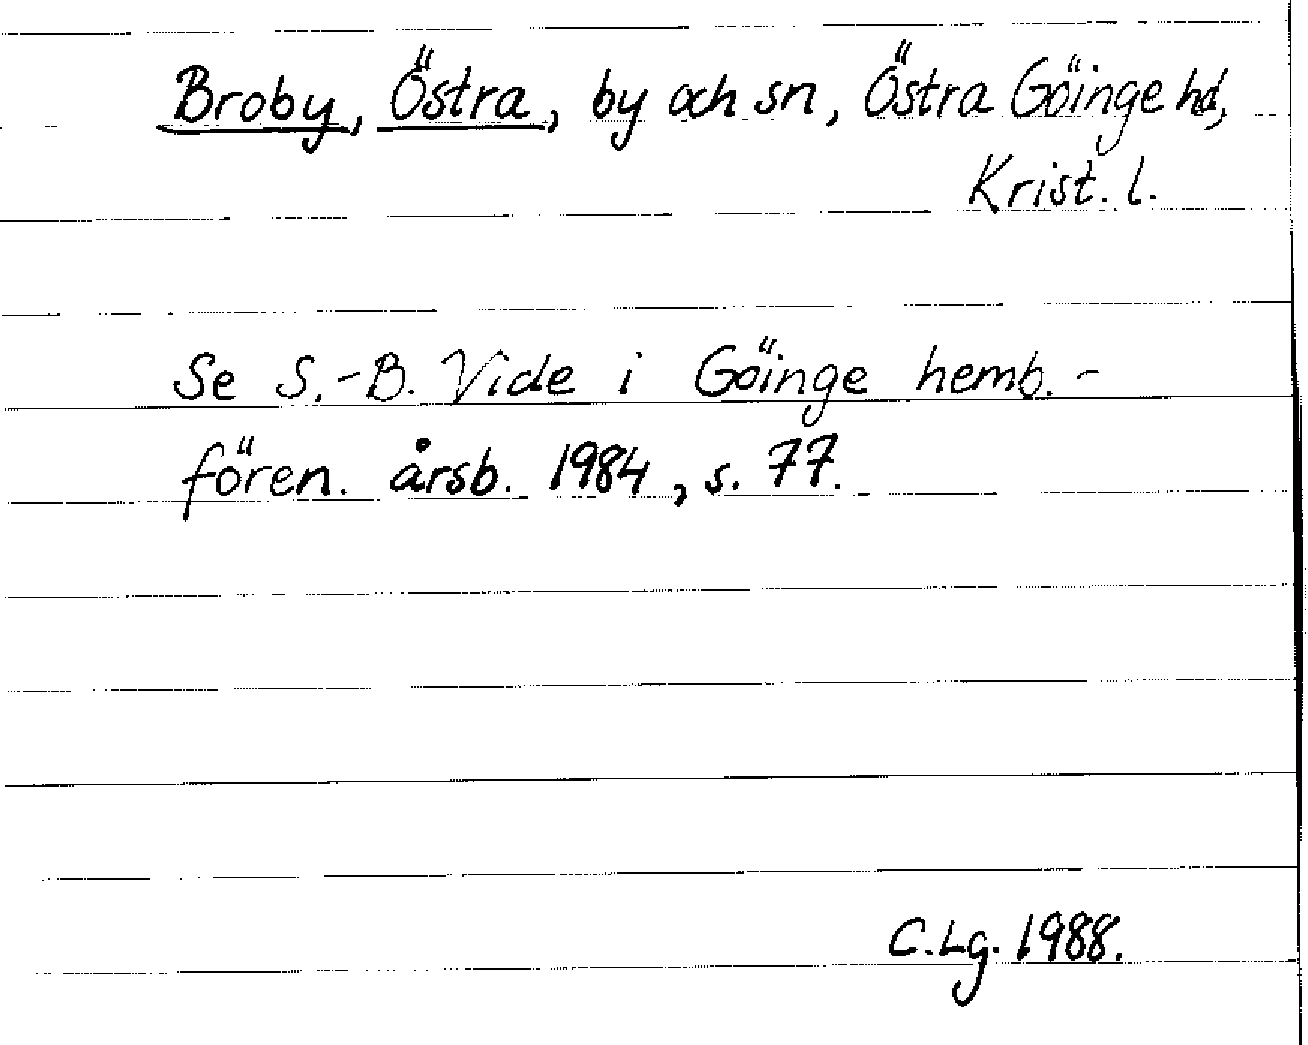 Broby, Östra, by och sn, Östra Göinge hd,
Krist. l.
Se S.-B. Vide i Göinge hemb.-
fören. årsb. 1984, s. 77.
C.Lg. 1988.